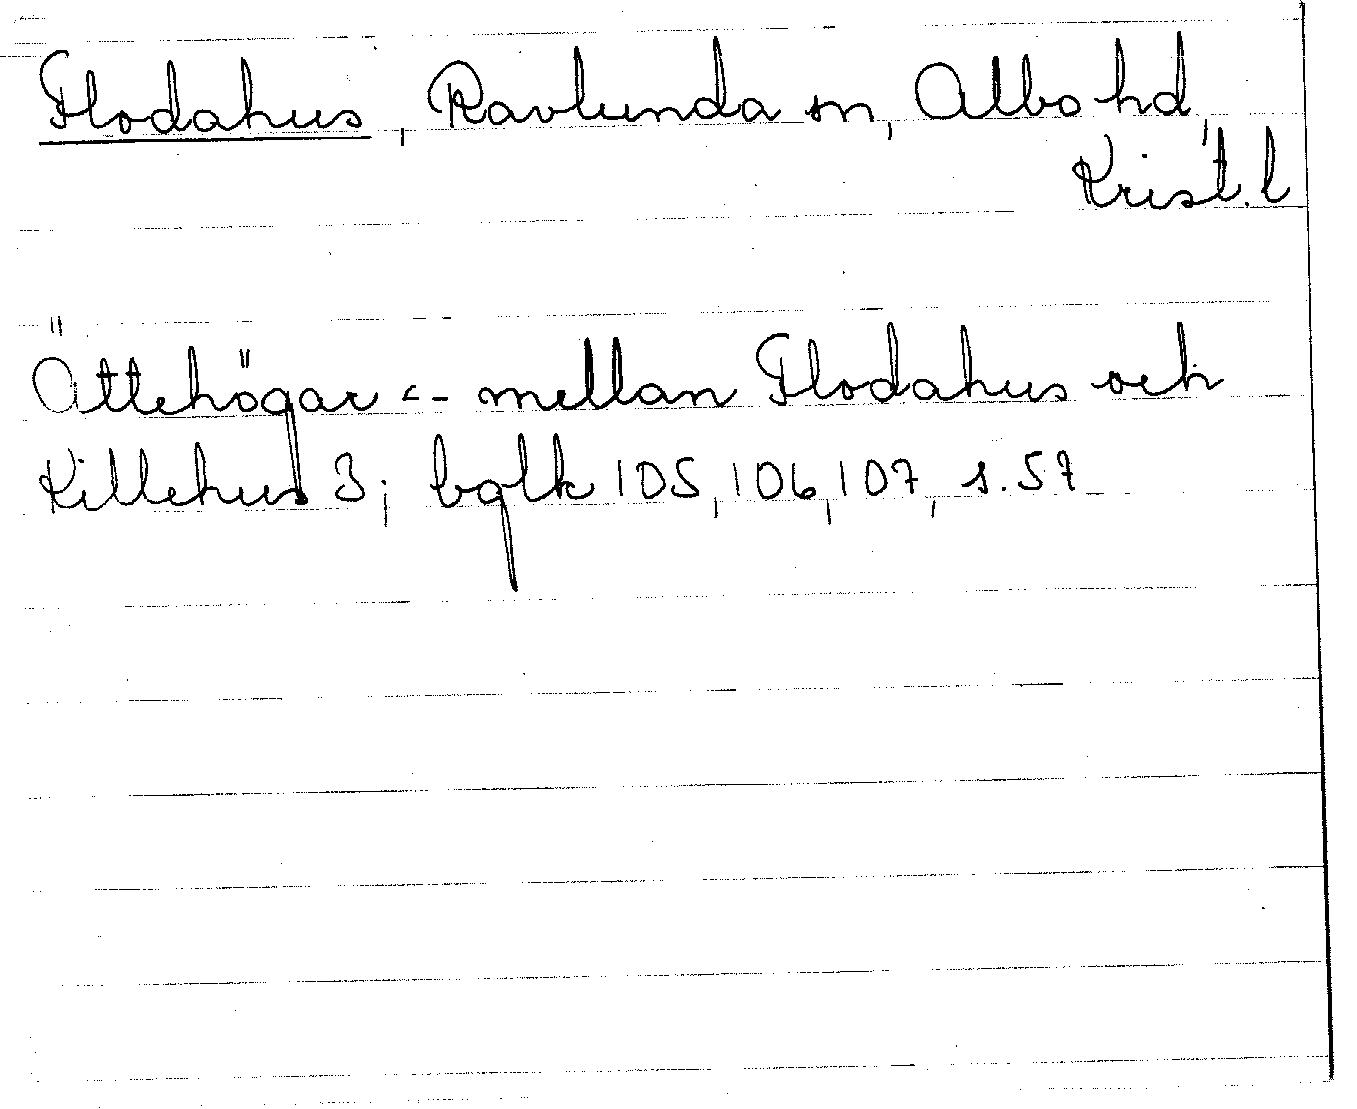 Flodahus, Ravlunda sn, Albo hd,
Krist. l
Ättehögar <- mellan Flodahus och
Killehus 3; bglk 105, 106, 107, s. 57